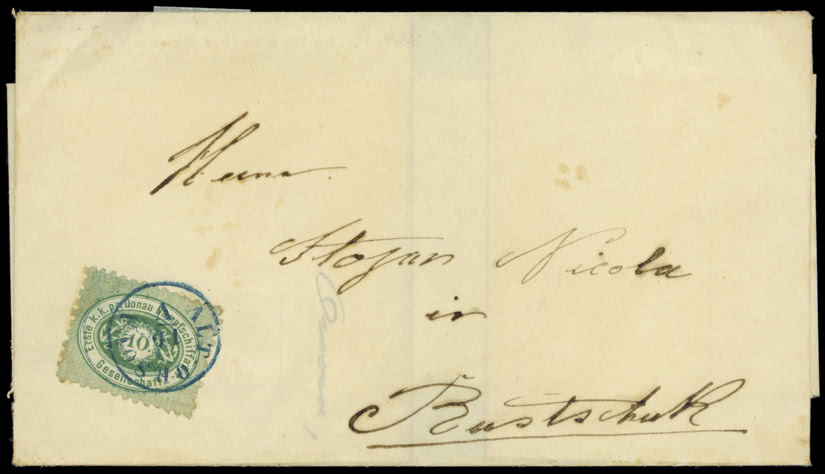 Herrn
Stojan Nicola
in
Rustschuk
Erste k.k. pr. Donau Dampfschiffahrt
Gesellschaft
10
ALT